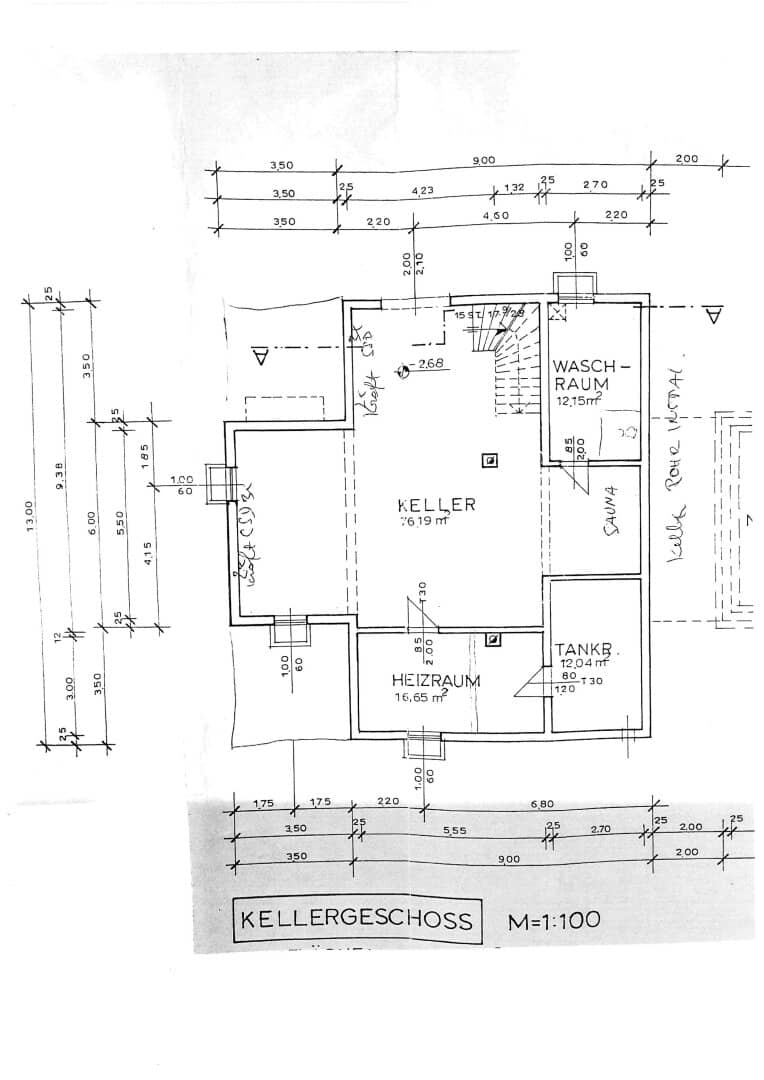 3,50 9,00 2,00
3,50 25 4,23 1,32 25 2,70 25
3,50 2,20 4,60 2,20
2,00
2,10
1,00
60
25
3,50
25
1,85
9,38
13,00
6,00
5,50
4,15
25
12
3,00
3,50
25
A
A
15 ST. 17,8/28
-2,68
WASCH-
RAUM
12,15m²
85
2,00
1,00
60
KELLER
76,19 m²
SAUNA
Kraft
Kraft
T30
85
2,00
TANKR.
12,04 m²
80
120
T30
HEIZRAUM
16,65 m²
1,00
60
1,00
60
1,75 1,75 2,20 6,80
3,50 25 5,55 25 2,70 25 2,00 25
3,50 9,00 2,00
KELLERGESCHOSS M=1:100